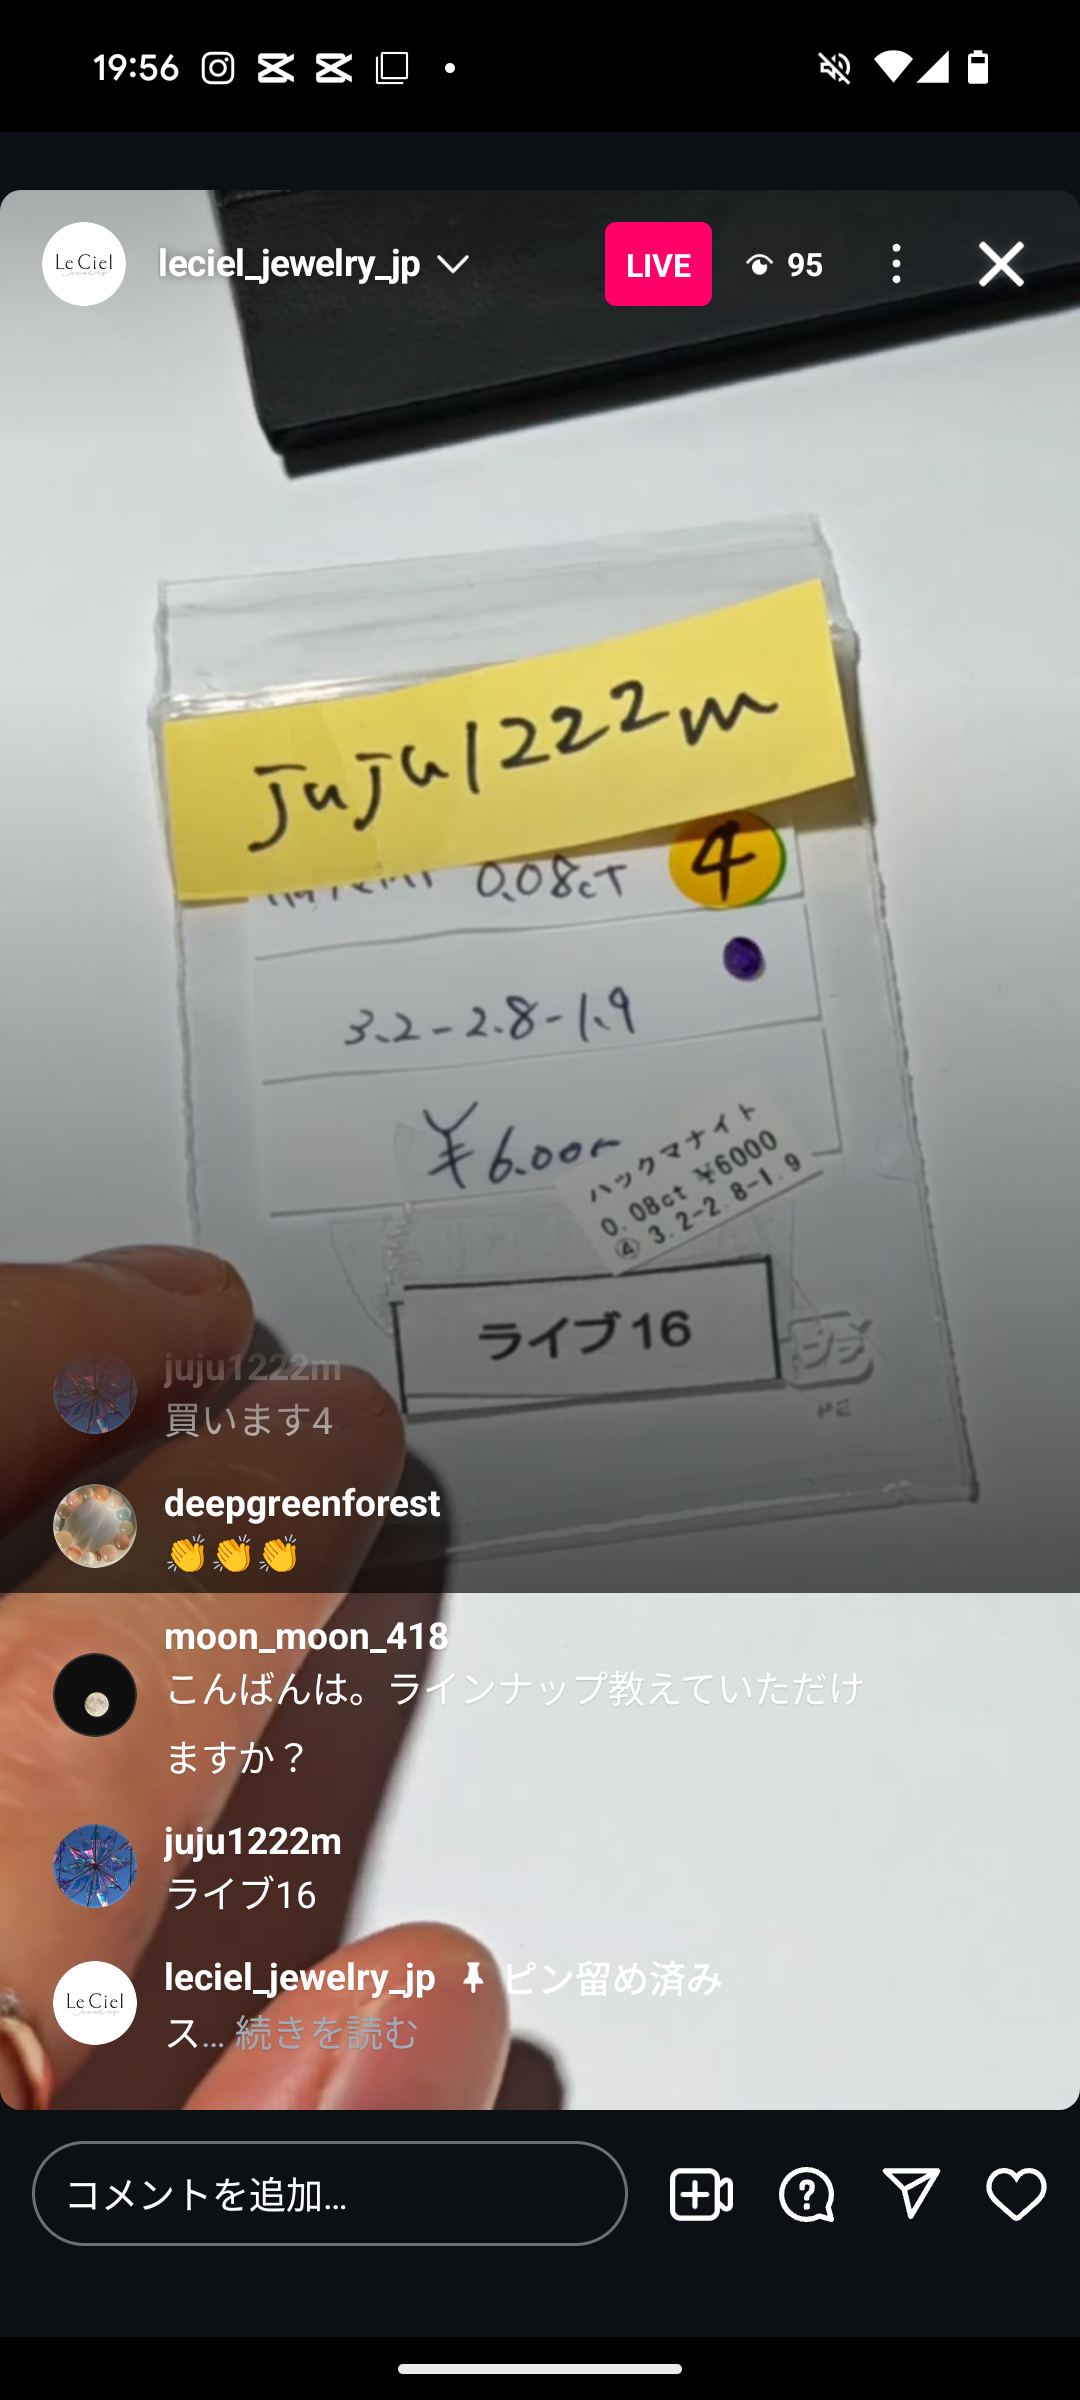 19:56
Le Ciel
leciel_jewelry_jp
LIVE
95
juju1222m
0.08cT
4
3.2-2.8-1.9
¥6.000
ハックマナイト
0.08ct ¥6000
④ 3.2-2.8-1.9
ライブ16
PE
juju1222m
買います4
deepgreenforest
👏👏👏
moon_moon_418
こんばんは。ラインナップ教えていただけ
ますか？
juju1222m
ライブ16
leciel_jewelry_jp ピン留め済み
Le Ciel
ス... 続きを読む
コメントを追加...